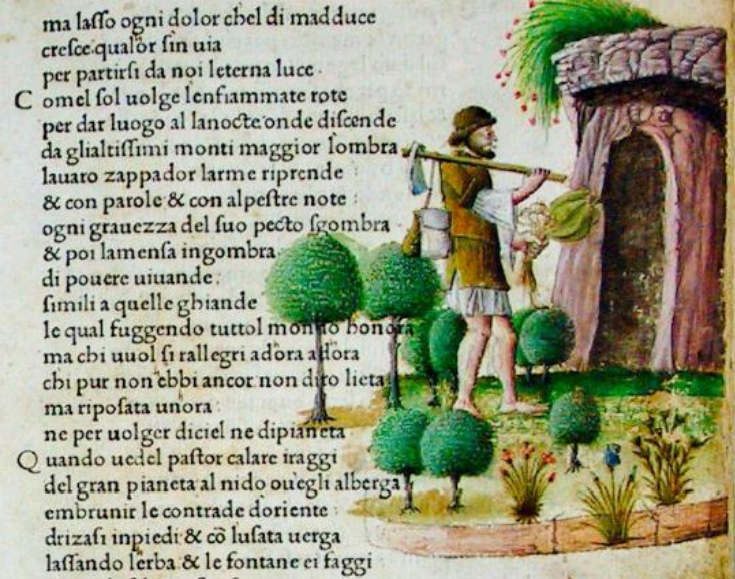 ma laſſo ogni dolor chel di madduce
creſce qualor ſin uia
per partirſi da noi leterna luce.
Comel ſol uolge lenfiammate rote
per dar luogo al lanocte onde diſcende
da glialtiſſimi monti maggior lombra
lauaro zappador larme riprende
& con parole & con alpeſtre note:
ogni grauezza del ſuo pecto ſgombra
& poi lamenſa ingombra
di pouere uiuande:
ſimili a quelle ghiande
le qual fuggendo tuttol mondo honora
ma chi uuol ſi rallegri adora adora
chi pur non ebbi ancor non diro lieta
ma ripoſata unora:
ne per uolger diciel ne dipianeta
Quando uedel paſtor calare iraggi
del gran pianeta al nido ouegli alberga
embrunir le contrade doriente:
drizaſi inpiedi & cō luſata uerga
laſſando lerba & le fontane ei faggi